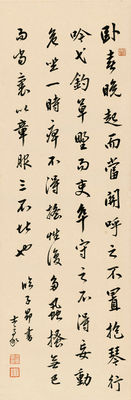 臥喜晚起而當關呼之不置抱琴行
吟弋釣草野而吏卒守之不得妄動
危坐一時痺不得搖性復多蝨搔無已
而當裹以章服三不堪也 臨子昂書